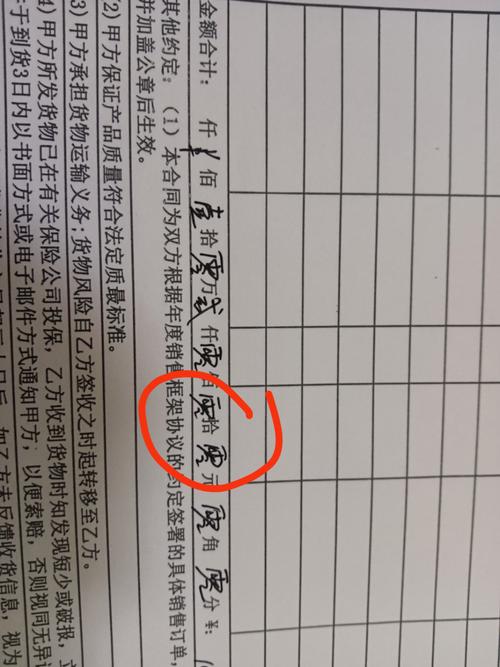 金额合计： 仟 ¥ 佰 壹 拾 零 万 贰 仟 零 佰 零 拾 零 元 零 角 零 分 ¥:
其他约定：（1）本合同为双方根据年度销售框架协议的约定签署的具体销售订单，
并加盖公章后生效。
2）甲方保证产品质量符合法定质最标准。
3）甲方承担货物运输义务;货物风险自乙方签收之时起转移至乙方。
4）甲方所发货物已在有关保险公司投保，乙方收到货物时如发现短少或破报，
于到货3日内以书面方式或电子邮件方式通知甲方，以便索赔，否则视同无异
如乙方未反馈收货信息，视为